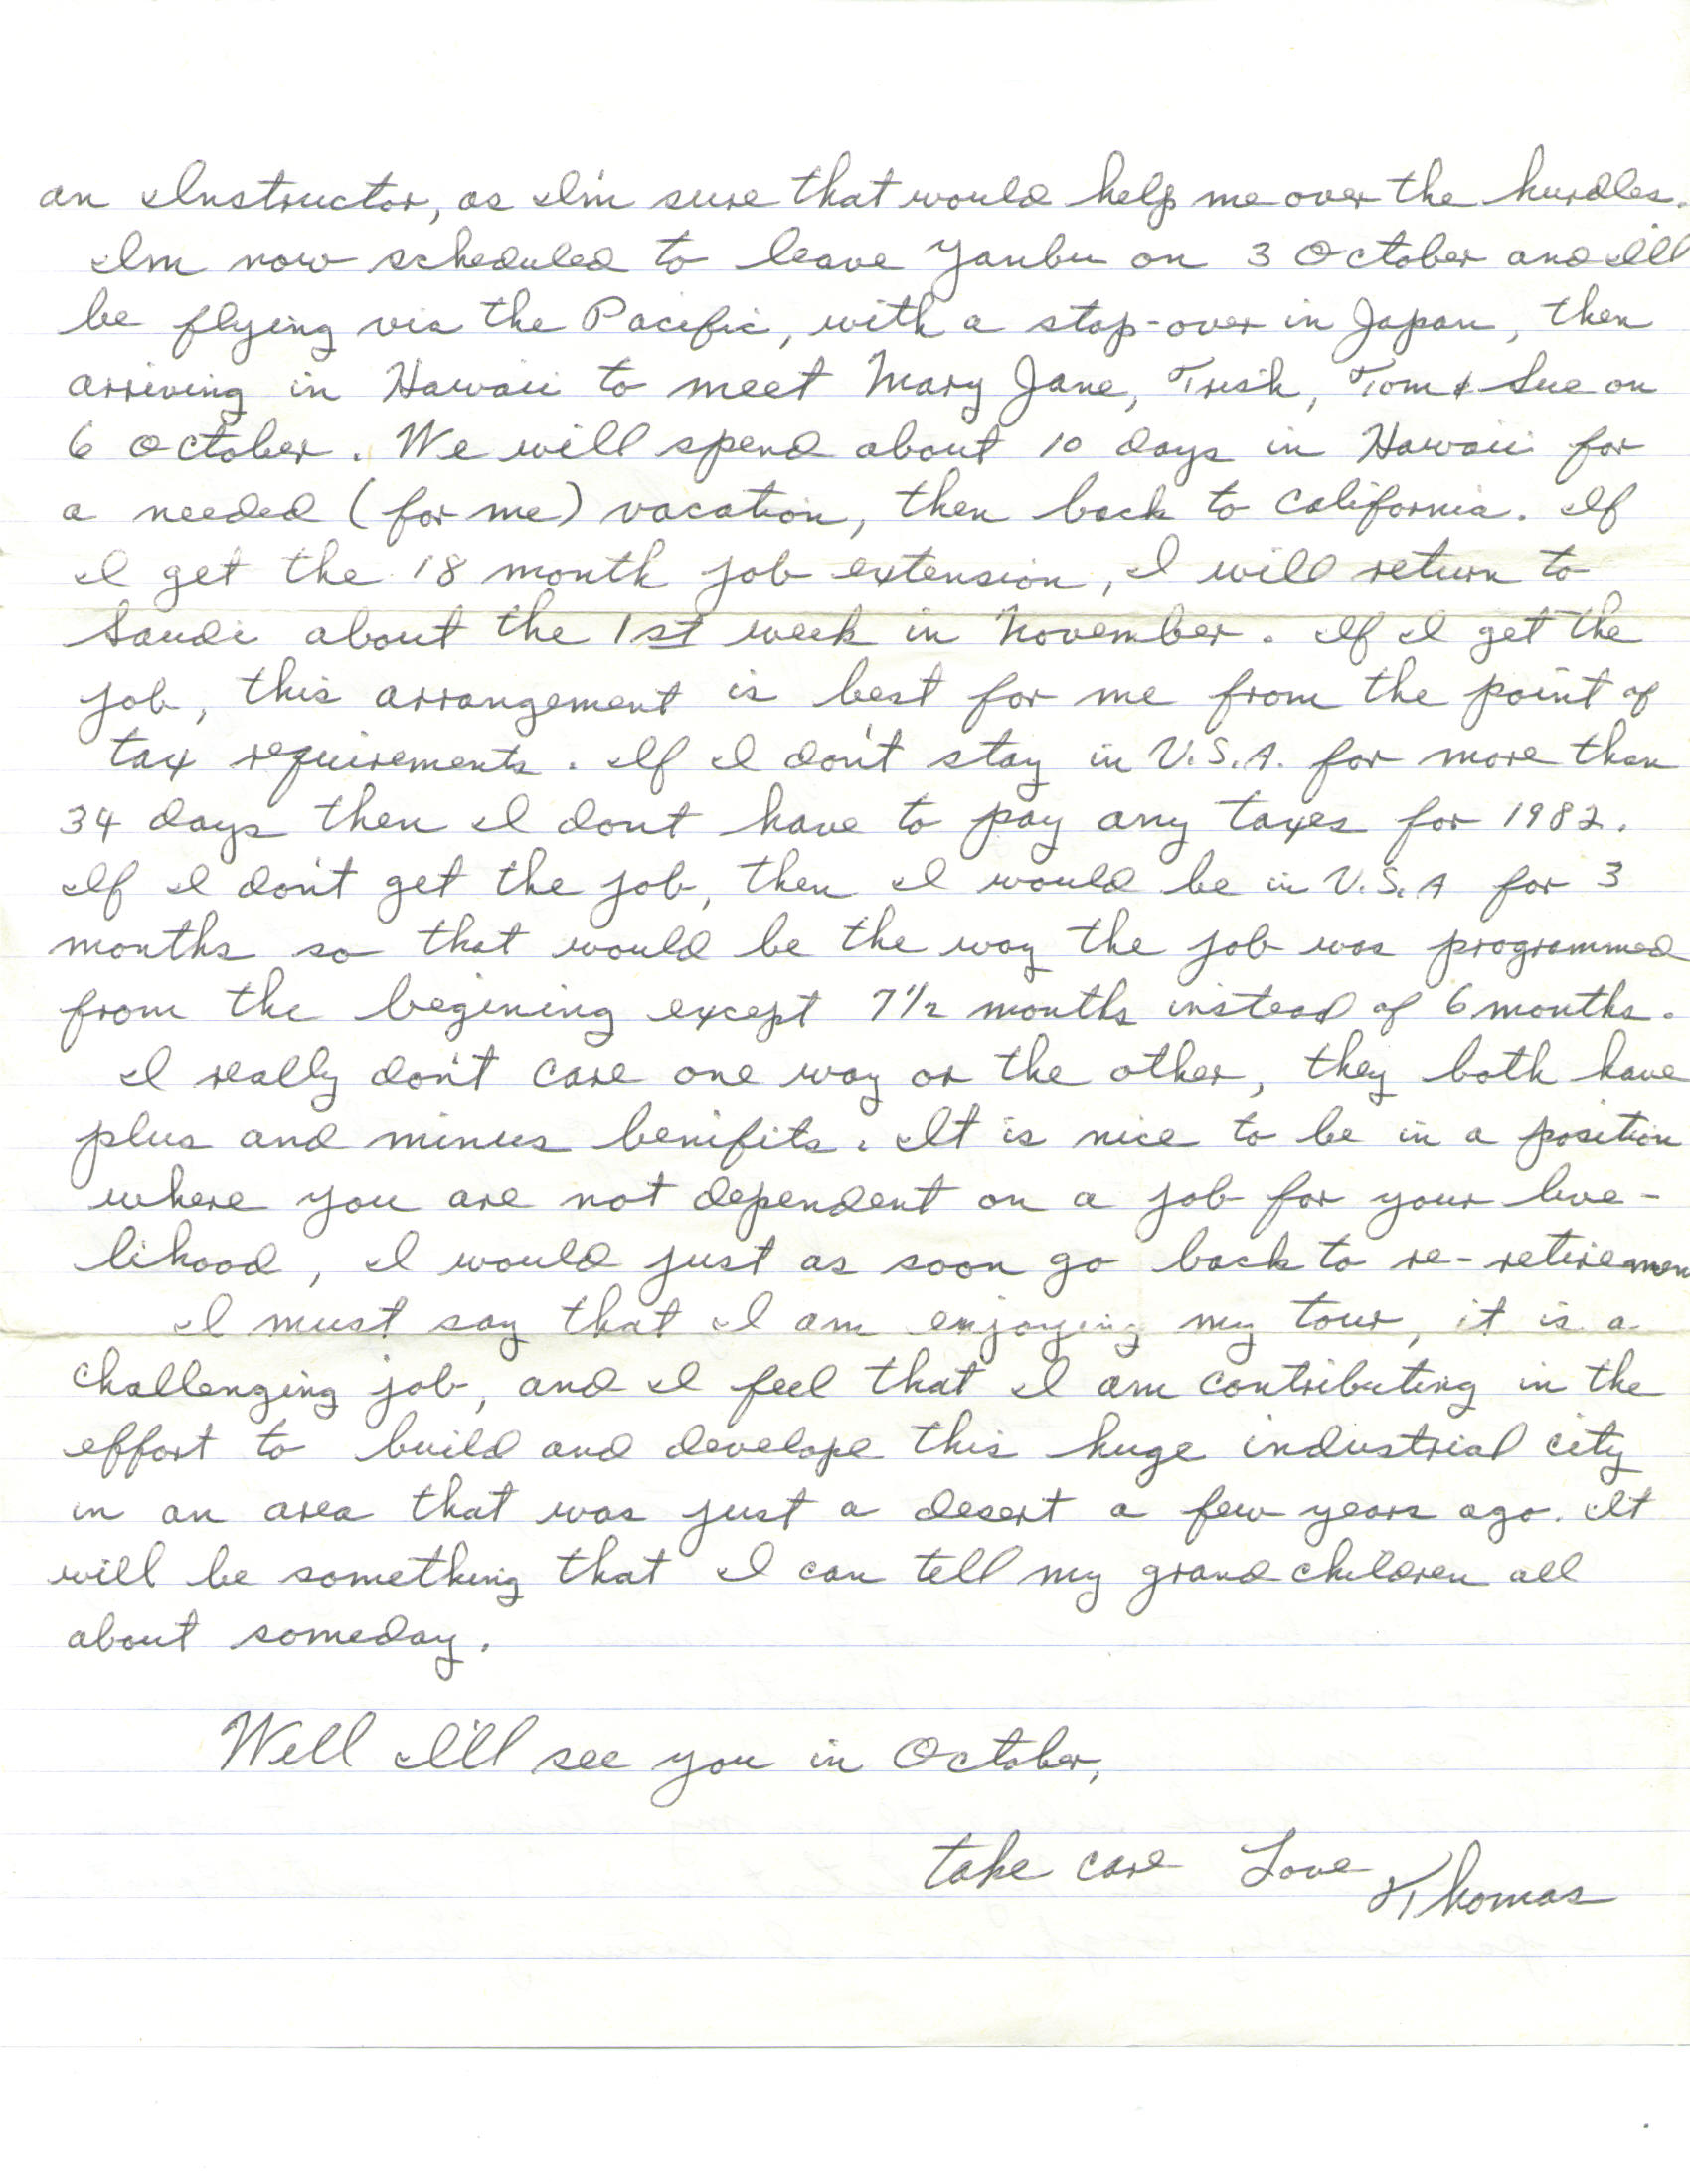 an Instructor, as I'm sure that would help me over the hurdles.
Im now scheduled to leave Yanbu on 3 October and I'll
be flying via the Pacific, with a stop-over in Japan, then
arriving in Hawaii to meet Mary Jane, Trish, Tom & Sue on
6 October. We will spend about 10 days in Hawaii for
a needed (for me) vacation, then back to California. If
I get the 18 month job extension, I will return to
Saudi about the 1st week in November. If I get the
job, this arrangement is best for me from the point of
tax requirements. If I don't stay in U.S.A. for more than
34 days then I dont have to pay any taxes for 1982.
If I don't get the job, then I would be in U.S.A for 3
months so that would be the way the job was programmed
from the begining except 7 1/2 months instead of 6 months.
I really don't care one way or the other, they both have
plus and minus benifits. It is nice to be in a position
where you are not dependent on a job for your live-
lihood, I would just as soon go back to re-retiremen
I must say that I am enjoying my tour, it is a
challenging job, and I feel that I am contributing in the
effort to build and develope this huge industrial city
in an area that was just a desert a few years ago. It
will be something that I can tell my grandchildren all
about someday.
Well I'll see you in October,
take care Love
Thomas